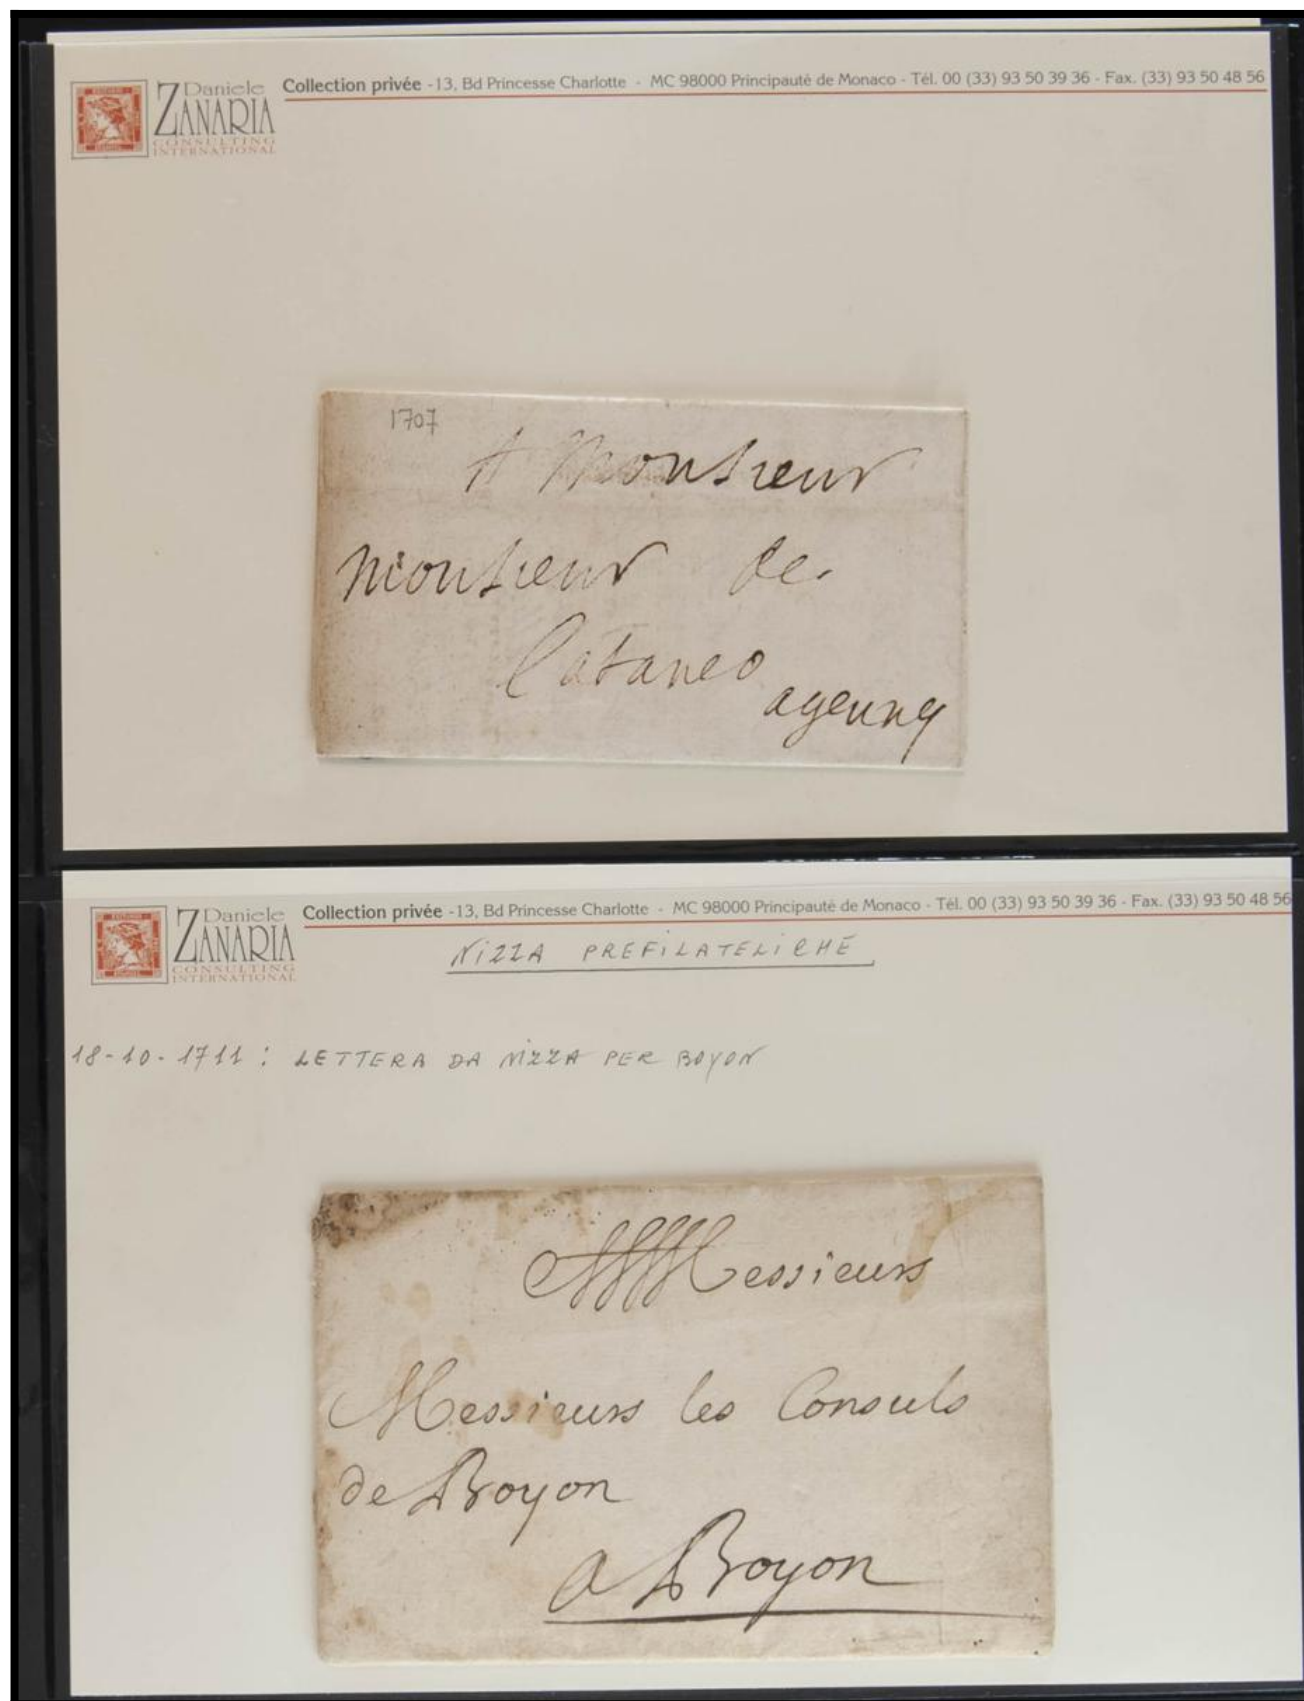 Daniele
ZANARIA
CONSULTING
INTERNATIONAL
Collection privée - 13, Bd Princesse Charlotte - MC 98000 Principauté de Monaco - Tél. 00 (33) 93 50 39 36 - Fax. (33) 93 50 48 56
1707
A Monsieur
Monsieur de
Cataneo
Daniele
ZANARIA
CONSULTING
INTERNATIONAL
Collection privée - 13, Bd Princesse Charlotte - MC 98000 Principauté de Monaco - Tél. 00 (33) 93 50 39 36 - Fax. (33) 93 50 48 56
NIZZA PREFILATELICHE
18-10-1711 : LETTERA DA NIZZA PER BOYON
Messieurs
Messieurs les Consuls
de Broyon
a Broyon